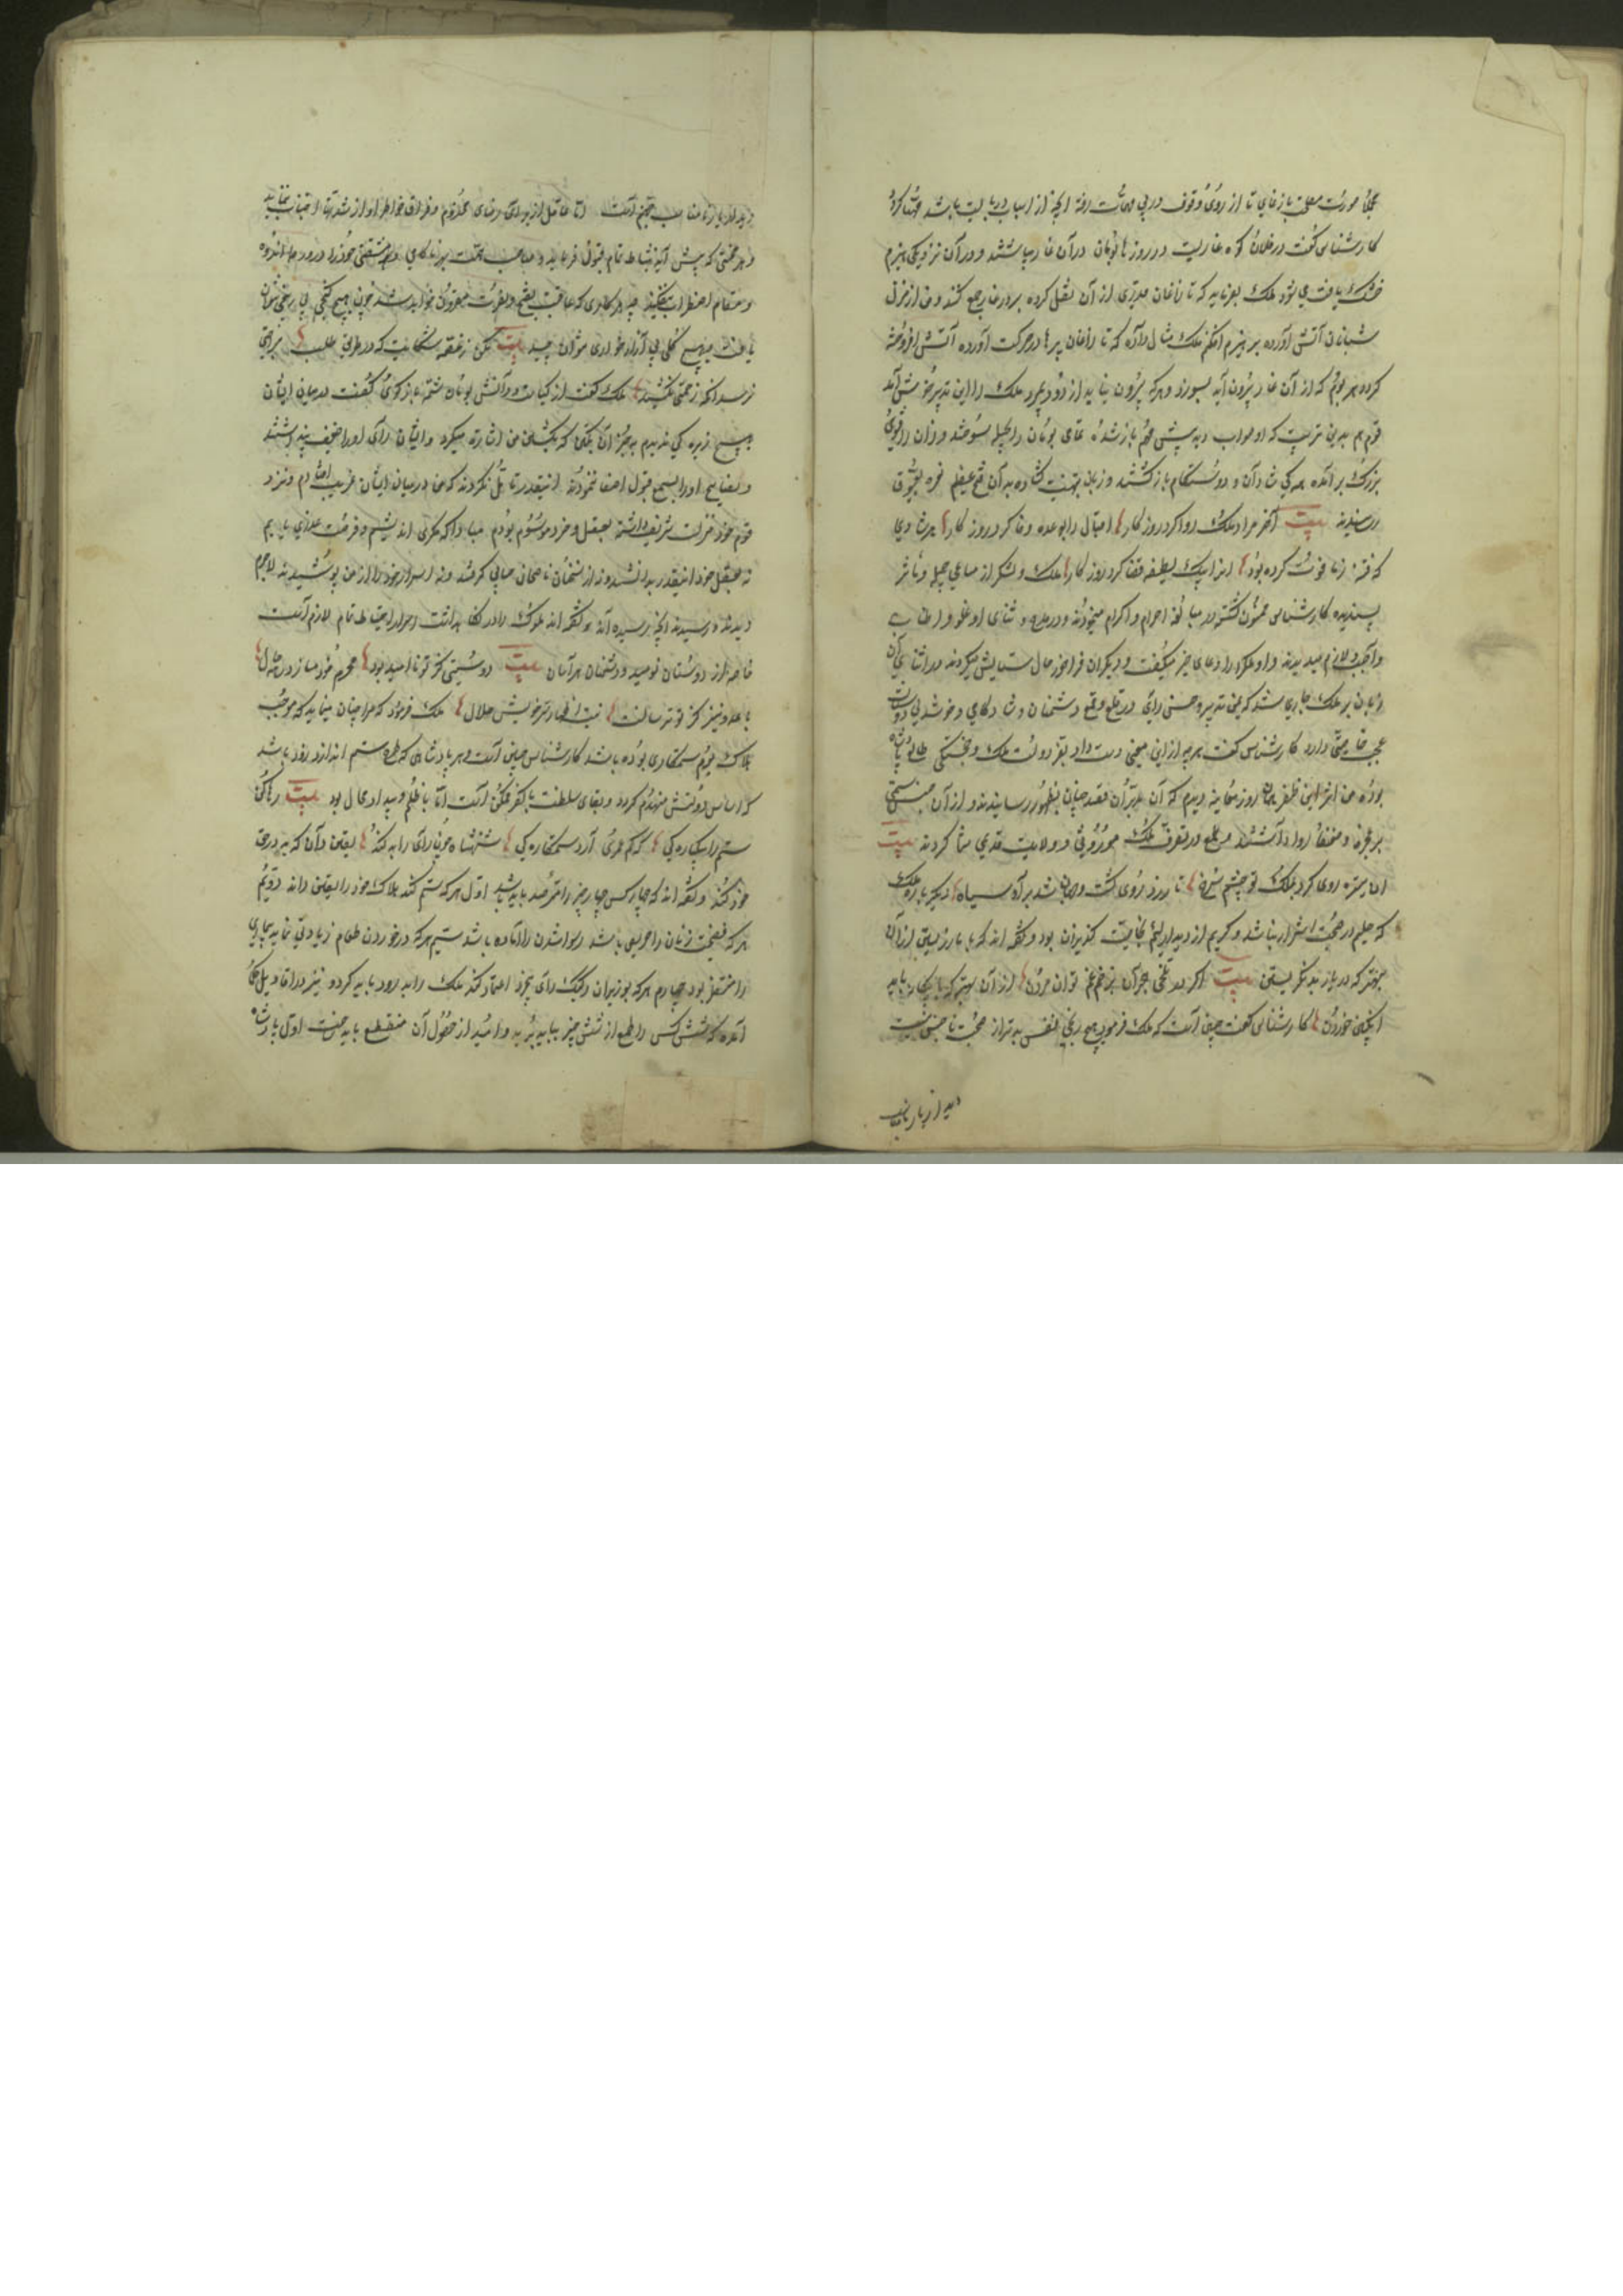 صورت مصلحت باز نمای تا از روی وقوف در پی مهمات رفته آنچه از اسباب درباید باشد مهیا کرد
کارشناس گفت در فلان کوه غاریست و روزها بومان در آن غار میباشند و در آن نزدیکی هیزم
خشک یافت می شود ملک بفرماید که تا زاغان قدری از آن نقل کرده بر در غار جمع کنند و من از منزل
شبانان آتش آورده بر هیزم افکنم ملک مثال دهد که تا زاغان پرها در حرکت آورده آتش افروخته
گردد هر بوم که از آن غار بیرون آید بسوزد و هر که بیرون نیاید از دود بمیرد ملک را این تدبیر خوش آمد
هم بدین ترتیب که او صواب دید پیش مهم باز شده تمامی بومان را بحیله سوختند و زاغان را فتحی
بزرگ برآمده همه شادمان و دوستکام باز گشتند و زبان تهنیت گشاده به آن فتح عظیم نعره بعیوق
رسانیدند بیت آخر مراد ملک روا کرد روزگار اقبال را بوعده وفا کرد روزگار هر شادی
که فتنه زما فوت کرده بود آنرا بیک لطیفه قضا کرد روزگار ملک و لشکر از مساعی جمیله و مآثر
پسندیده کارشناس ممنون گشته در مبالغه احترام و اکرام مینمودند و در مدح و ثنای او غلو و اطناب
واجب و لازم میدیدند و او ملک را دعای خیر میگفت و دیگران را فراخور حال ستایش میکردند در اثنای آن
بر زبان ملک جاری شد که یمن تدبیر و حسن رای در قلع و قمع دشمنان و شادکامی و خوشدلی دوستان
عجب خاصیتی دارد کارشناس گفت هر چه از این معنی دست داد بفر دولت ملک و خجستگی طالع پادشاه
بوده من اثر این ظفر همان روز معاینه دیدم که آن مدبران قصد چنان بظهور رسانیدند و از آن جنس
بر عجزه و ضعفا روا داشتند و طمع در تصرف ملک موروثی و ولایت قدیمی شما کردند بیت
آن تیره روی کرد بملک تو چشم سرخ تا روز روی گشت و جهان شد بر او سیاه دیگر باره ملک
که حلیم در صحبت اشرار بناشد و کریم از دیدار لئیم بغایت گریزان بود و گفته اند که با مار زیستن از آن
بهتر که در یار بد نگریستن بیت اگر در تلخی هجران بزخم غم توان مردن از آن بهتر که با بیگانه باید
انگبین خوردن کارشناس گفت چنین است که ملک فرمود هیچ رنجی نفس را بدتر از صحبت ناجنس نیست
دیدار یار نامناسب

دیدار یار نامناسب جحیم است اما عاقل از برای رضای مخدوم و فراغ خاطر او از شدتها اجتناب ننماید
و هر محنتی که پیش آید بنشاط تمام قبول فرماید و صاحب همت بهر ناکامی و مشقتی خود را در ورطه اندوه
و مقام اضطراب نیفکند چه هر کاری که عاقبت بفتح و نصرت مقرون خواهد شد چون هیچ گنجی بی رنجی نتوان
یافت و هیچ گلی بی آزار خاری نتوان چید بیت مکن ز غصه شکایت که در طریق طلب براحتی
نرسید آنکه زحمتی نکشید ملک گفت از کیاست و دانش بومان شمه باز گوی گفت در میان ایشان
هیچ زیرک ندیدم بجز آن یکی که بکشتن من اشارت میکرد و ایشان رای او را ضعیف پنداشتند
و نصایح او را بسمع قبول اصغا ننمودند اینقدر تأمل نکردند که من در میان ایشان غریب افتاده ام و نزد
قوم خود منزلت شریف داشته بعقل و خرد موسوم بودم مبادا که مکری اندیشم و فرصت غدری یابم
نه بعقل خود اینقدر بدانستند و نه از سخنان ناصحان حسابی گرفتند و نه اسرار خود را از من پوشیدند لاجرم
دیدند و رسیدند آنچه رسیده اند و گفته اند ملوک را در نگاهداشت اسرار احتیاط تمام لازم است
خاصه از دوستان نومید و دشمنان هراسان بیت دوستی کز تو ناامید بود محرم خود مساز در همه حال
با عدو نیز کز تو ترسانست نیست اظهار سر خویش حلال ملک فرمود که مرا چنان مینماید که موجب
هلاک بوم ستمکاری بوده باشد کارشناس گفت چنین است و هر پادشاهی که طرح ستم اندازد زود باشد
که اساس دولتش منهدم گردد و بقای سلطنت با کفر ممکن است اما با ظلم و بیداد محال بود بیت رها کن
ستم را بیکباره گی که کم عمری آرد ستمکاره گی شهنشاه چون رای را بد کند یقین دان که بد در حق
خود کند و گفته اند که چهار کس چهار چیز را مترصد باید بود اول هر که ستم کند هلاک خود را یقین داند دویم
هر که بصحبت زنان حریص باشد رسوا شدن را آماده باشد سیم هر که در خوردن طعام زیادتی نماید بیماری
را منتظر بود چهارم هر که بوزیران رکیک رای بیخرد اعتماد کند ملک را بدرود باید کرد و نیز در اقاویل حکما
آمده که شش کس را طمع از شش چیز بباید برید و امید از حصول آن منقطع باید ساخت اول پادشاه